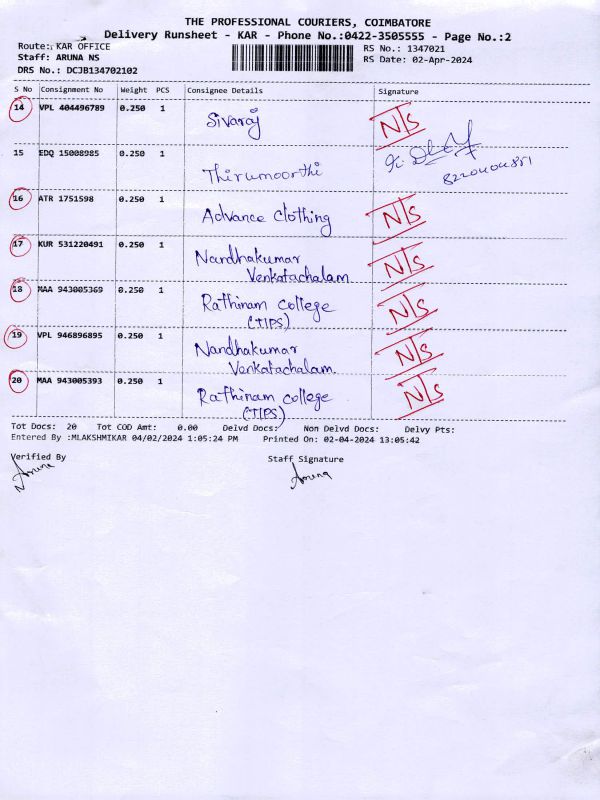 THE PROFESSIONAL COURIERS, COIMBATORE
Delivery Runsheet - KAR - Phone No.:0422-3505555 - Page No.:2
Route: KAR OFFICE
RS No.: 1347021
Staff: ARUNA NS
RS Date: 02-Apr-2024
DRS No.: DCJB134702102
S No Consignment No Weight PCS Consignee Details Signature
14 VPL 404496789 0.250 1 Sivaraj N/S
15 EDQ 15008985 0.250 1 Thirumoorthi
16 ATR 1751598 0.250 1 Advance Clothing N/S
17 KUR 531220491 0.250 1 Nandhakumar N/S
Venkatachalam
18 MAA 943005369 0.250 1 Rathinam College N/S
(TIPS)
19 VPL 946896895 0.250 1 Nandhakumar N/S
Venkatachalam.
20 MAA 943005393 0.250 1 Rathinam college N/S
(TIPS)
Tot Docs: 20 Tot COD Amt: 0.00 Delvd Docs: Non Delvd Docs: Delvy Pts:
Entered By :MLAKSHMIKAR 04/02/2024 1:05:24 PM Printed On: 02-04-2024 13:05:42
Verified By Staff Signature
Aruna Aruna